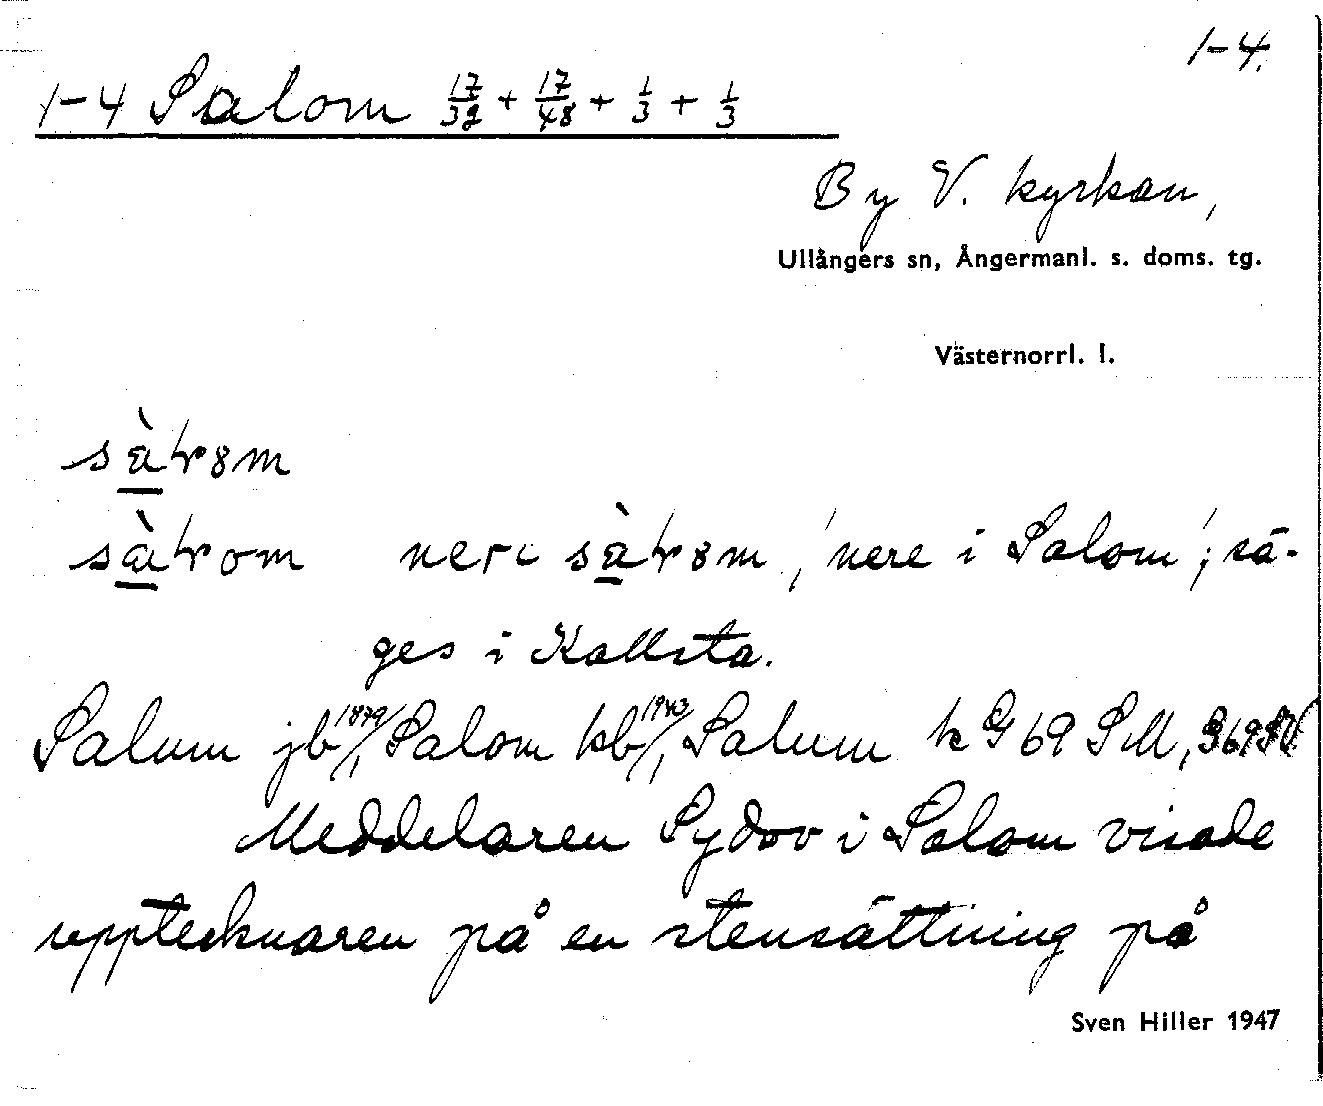 1-4.
1-4 Salom 17/32 + 17/48 + 1/3 + 1/3
By V. kyrkan,
Ullångers sn, Ångermanl. s. doms. tg.
Västernorrl. l.
nere i Salom'; sä-
ges i Kallsta.
Salum jb 1879/1, Salom kb 1943/1, Salum k G 69 SM,
Meddelaren Sydov i Salom visade
upptecknaren på en stensättning på
Sven Hiller 1947